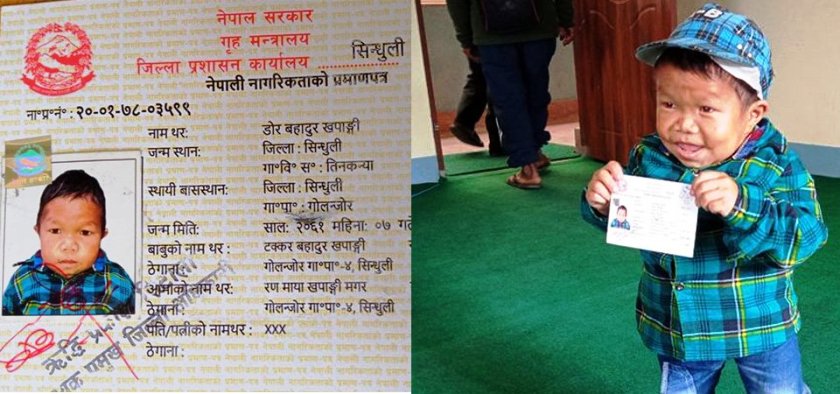 नेपाल सरकार
गृह मन्त्रालय
जिल्ला प्रशासन कार्यालय ................ सिन्धुली
नेपाली नागरिकताको प्रमाणपत्र
ना॰प्र॰नं॰ : २०-०१-७८-०३५९९
नाम थर: डोर बहादुर खपाङ्गी
जन्म स्थान: जिल्ला : सिन्धुली
गा॰वि॰ स॰ : तिनकन्या
स्थायी बासस्थान: जिल्ला : सिन्धुली
गा॰पा॰ : गोलन्जोर
जन्म मिति: साल: २०६१ महिना: ०७
बाबुको नाम थर : टक्कर बहादुर खपाङ्गी
ठेगाना: गोलन्जोर गा॰पा॰-४, सिन्धुली
आमाको नाम थर: रण माया खपाङ्गी मगर
ठेगाना: गोलन्जोर गा॰पा॰-४, सिन्धुली
पति/पत्नीको नामथर : XXX
ठेगाना :